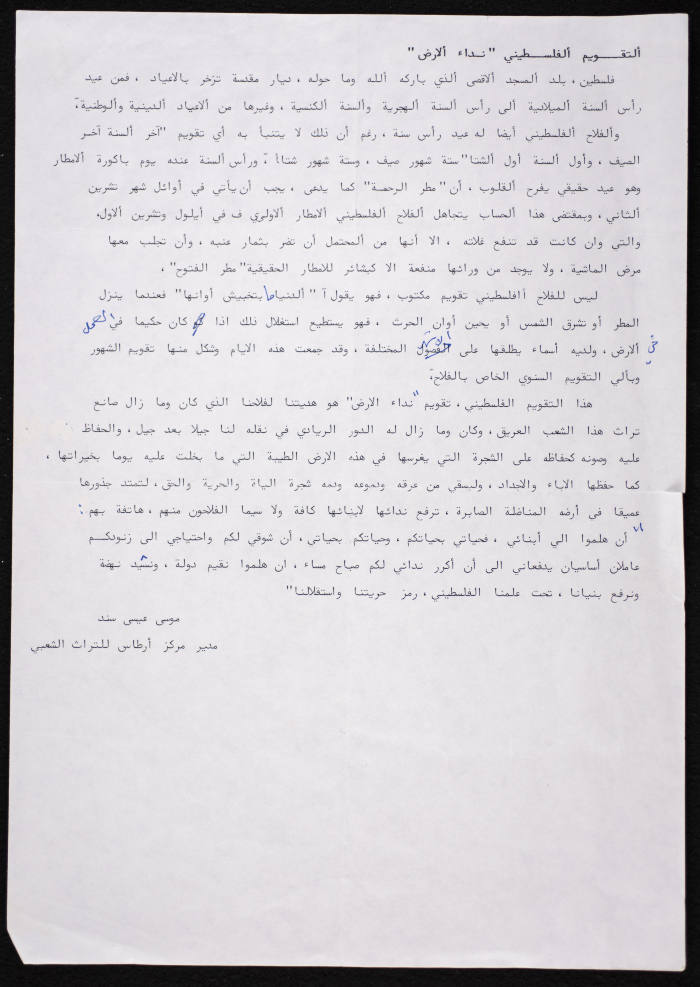 ألتقــويم ألفلســطيني "نـداء ألارض"
فلسطين ، بلد ألمسجد ألاقصى ألذي باركه ألله وما حوله ، ديار مقدسة تزخر بالاعياد ، فمن عيد
رأس ألسنة ألميلادية ألى رأس ألسنة ألهجرية وألسنة ألكنسية ، وغيرها من ألاعياد ألدينية وألوطنية.
وألفلاح ألفلسطيني أيضا له عيد رأس سنة ، رغم أن ذلك لا يتنبأ به أي تقويم "آخر ألسنة آخر
الصيف ، وأول ألسنة أول ألشتا" ستة شهور صيف ، وستة شهور شتاأ . ورأس ألسنة عنده يوم باكورة ألامطار
وهو عيد حقيقي يفرح ألقلوب ، أن "مطر الرحمـة" كما يدعى ، يجب أن يأتي في أوائل شهر تشرين
ألثاني ، وبمقتضى هذا ألحساب يتجاهل ألفلاح ألفلسطيني ألامطار ألاولىري ف في أيلول وتشرين ألاول،
والتي وان كانت قد تنفع غلاته ، الا أنها من ألمحتمل أن تضر بثمار عنبه ، وأن تجلب معها
مرض الماشية ، ولا يوجد من ورائها منفعة الا كبشائر للامطار الحقيقية "مطر الفتوح" ،
ليس للفلاح أافلسطيني تقويم مكتوب ، فهو يقول آ " ألدنيا ما بتخبيش أوانها" فعندما ينزل
المطر أو تشرق الشمس أو يحين أوان الحرث ، فهو يستطيع استغلال ذلك اذا كان حكيما في العمل
في ألارض ، ولديه أسماء يطلقها على الأشهر المختلفة ، وقد جمعت هذه الايام وشكل منها تقويم الشهور
وبألي التقويم السنوي الخاص بالفلاح.
هذا التقويم الفلسطيني ، تقويم "نداء الارض" هو هديتنا لفلاحنا الذي كان وما زال صانع
تراث هذا الشعب العريق ، وكان وما زال له الدور الريادي في نقله لنا جيلا بعد جيل ، والحفاظ
عليه وصونه كحفاظه على الشجرة التي يغرسها في هذه الارض الطيبة التي ما بخلت عليه يوما بخيراتها ،
كما حفظها الاباء والاجداد ، وليسقي من عرقه ودموعه ودمه شجرة الياة والحرية والحق ، لتمتد جذورها
عميقا في أرضه المناضلة الصابرة ، ترفع ندائها لابنائها كافة ولا سيما الفلاحون منهم ، هاتفة بهم :
" أن هلموا الي أبنائي ، فحياتي بحياتكم ، وحياتكم بحياتي ، أن شوقي لكم واحتياجي الى زنودكــم
عاملان أساسيان يدفعاني الى أن أكرر ندائي لكم صباح مساء ، ان هلموا نقيم دولة ، ونشيد نهضة
ونرفع بنيانا ، تحت علمنا الفلسطيني ، رمز حريتنا واستقلالنا"
موسى عيسى سند
مدير مركز أرطاس للتراث الشعبي